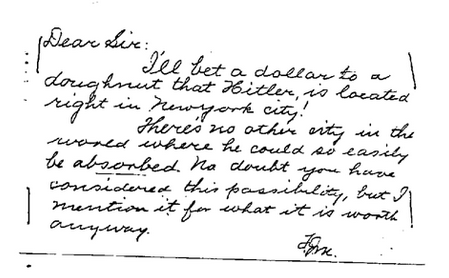 Dear Sir:
I'll bet a dollar to a
doughnut that Hitler, is located
right in New York city!
There's no other city in the
world where he could so easily
be absorbed. No doubt you have
considered this possibility, but I
mention it for what it is worth
anyway.